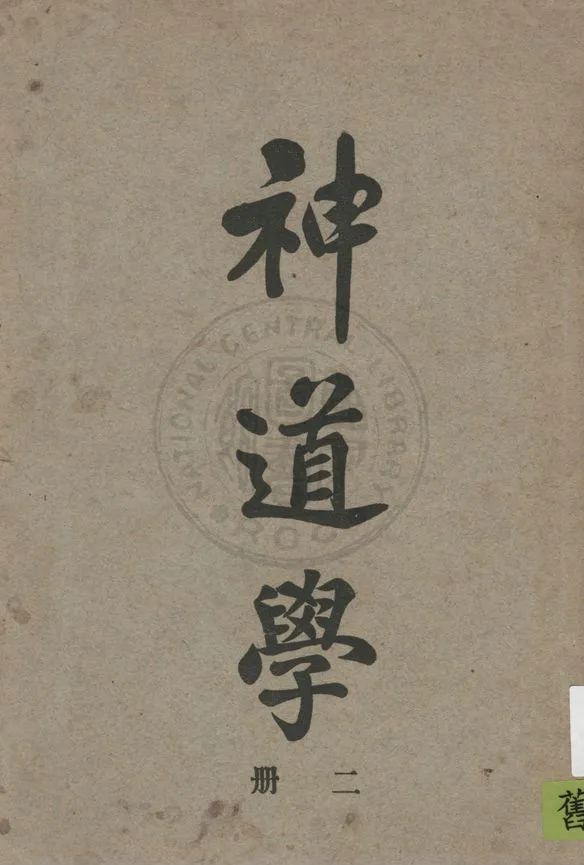 神道學
二册
NATIONAL CENTRAL LIBRARY
ROC
舊